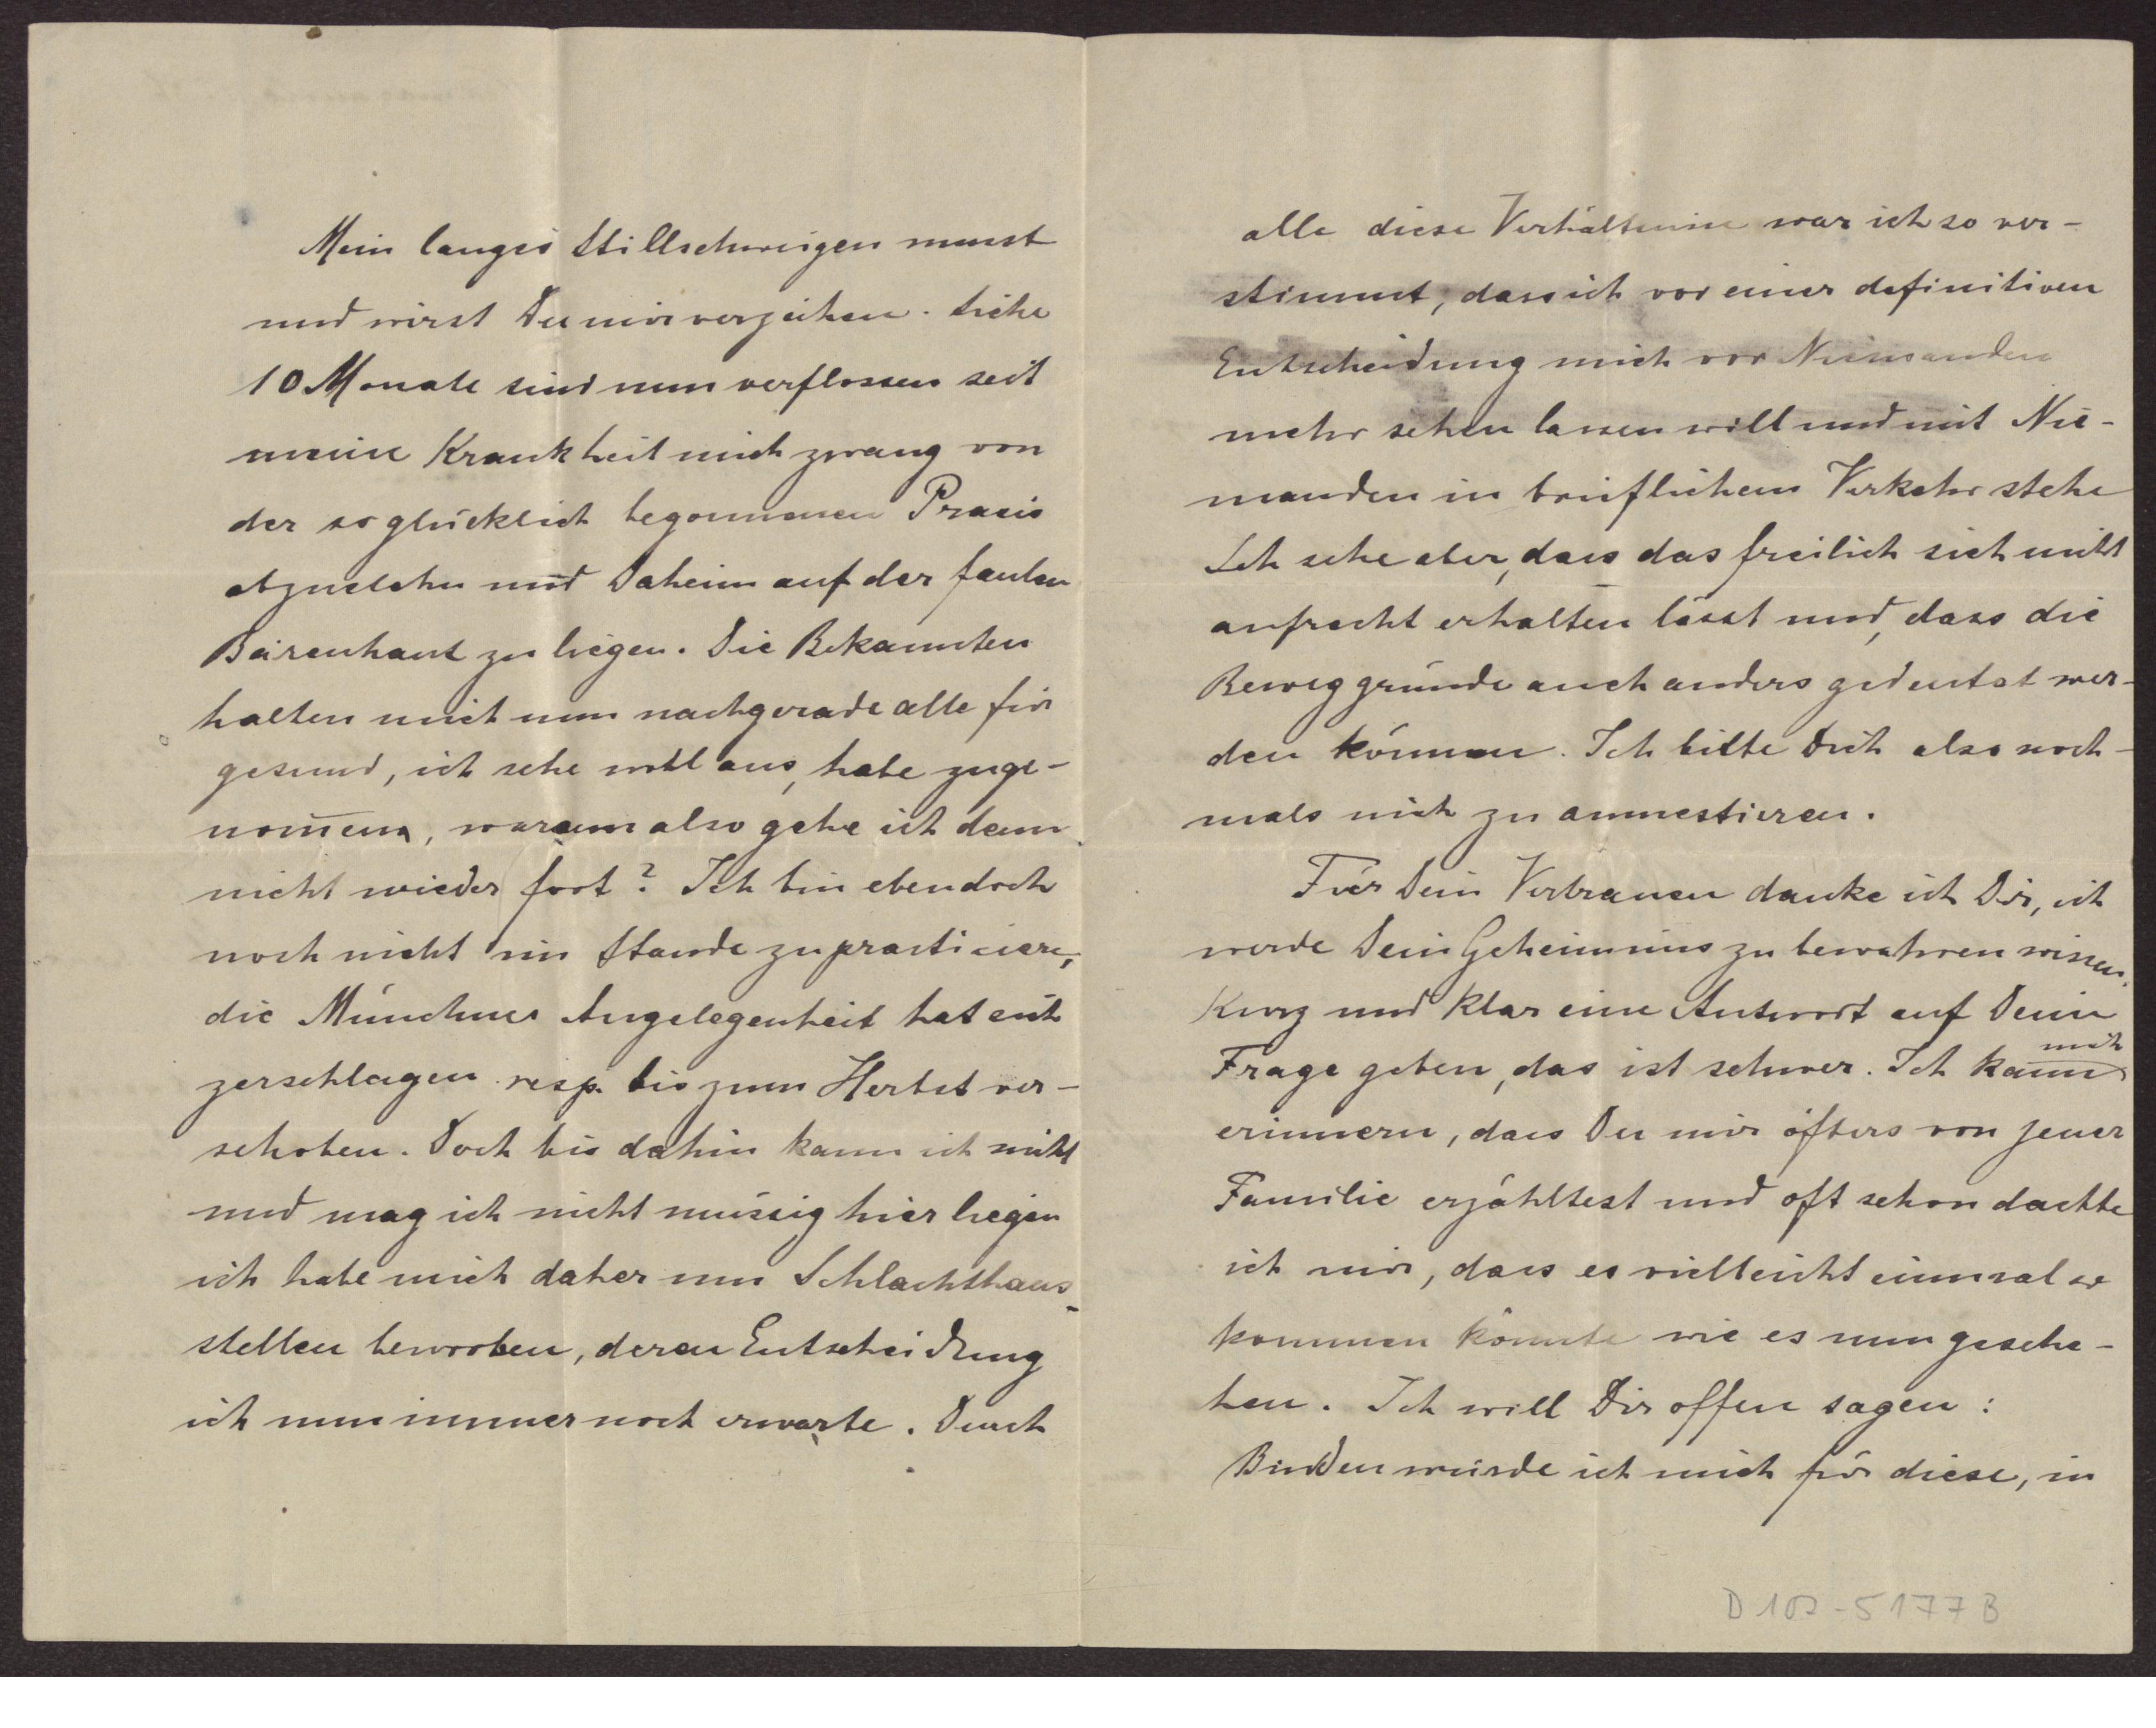 Mein langes Stillschweigen musst
und wirst Du mir verzeihen. Siehe
10 Monate sind nun verflossen seit
meine Krankheit mich zwang von
der so glücklich begonnenen Praxis
abzustehn und Daheim auf der faulen
Bärenhaut zu liegen. Die Bekannten
halten mich nun nachgerade alle für
gesund, ich sehe wohl aus, habe zuge-
nom̄en, warum also gehe ich denn
nicht wieder fort? Ich bin eben doch
noch nicht im Stande zu practiciere,
die Münchner Angelegenheit hat sich
zerschlagen resp. bis zum Herbst ver-
schoben. Doch bis dahin kann ich nicht
und mag ich nicht müssig hier liegen
ich habe mich daher um Schlachthaus-
stellen beworben, deren Entscheidung
ich nun immer noch erwarte. Durch
alle diese Verhältnisse war ich so ver-
stimmt, dass ich vor einer definitiven
Entscheidung mich vor Niemanden
mehr sehen lassen will und mit Nie-
manden in brieflichem Verkehr stehe
Ich sehe aber, dass das freilich sich nicht
aufrecht erhalten lässt und, dass die
Beweggründe auch anders gedeutet wer-
den können. Ich bitte Dich also noch-
mals mich zu amnestieren.
Für Dein Vertrauen danke ich Dir, ich
werde Dein Geheimniss zu bewahren wissen.
Kurz und klar eine Antwort auf Deine
Frage geben, das ist schwer. Ich kann mich
erinnern, dass Du mir öfters von jener
Familie erzähltest und oft schon dachte
ich mir, dass es vielleicht einmal so
kommen könnte wie es nun gesche-
hen. Ich will Dir offen sagen:
Binden würde ich mich für diese, in
D 102-5177 B